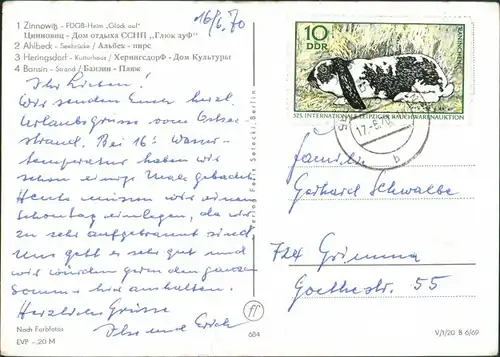 1 Zinnowitz - FDGB-Heim „Glück auf“
Цинновиц - Дом отдыха ССНП „Глюк ауф“
2 Ahlbeck - Seebrücke / Альбек - пирс
3 Heringsdorf - Kulturhaus / Херингсдорф - Дом Культуры
4 Bansin - Strand / Банзин - Пляж
16/6. 70
Ihr Lieben!
Wir senden Euch herzl.
Urlaubsgrüsse vom Ostsee-
strand. Bei 16° Wasser-
temperatur haben wir
schon einige Male gebadet.
Heute müssen wir einen
Schontag einlegen, da wir
zu sehr aufgebrannt sind.
Uns geht es sehr gut und
wir würden gern den ganzen
Sommer hier aushalten.
Herzliche Grüsse
Ilse und Erich
Nach Farbfotos
EVP -,20 M
684
Verlag Felix Setecki, Berlin
10
DDR
525. INTERNATIONALE LEIPZIGER RAUCHWARENAUKTION
17.-6.70
b
Familie
Gerhard Schwalbe
724 Grimma
Goethestr. 55
V/1/20 B 6/69